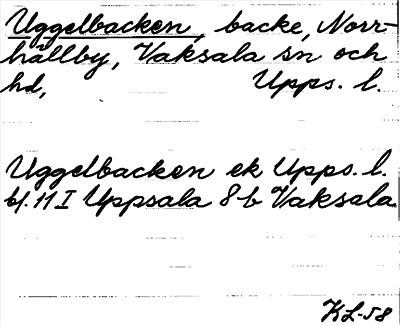 Uggelbacken, backe, Norr-
hällby, Vaksala sn och
hd, Upps. l.
Uggelbacken ek Upps. l.
bl. 11 I Uppsala 8 b Vaksala.
KL-58